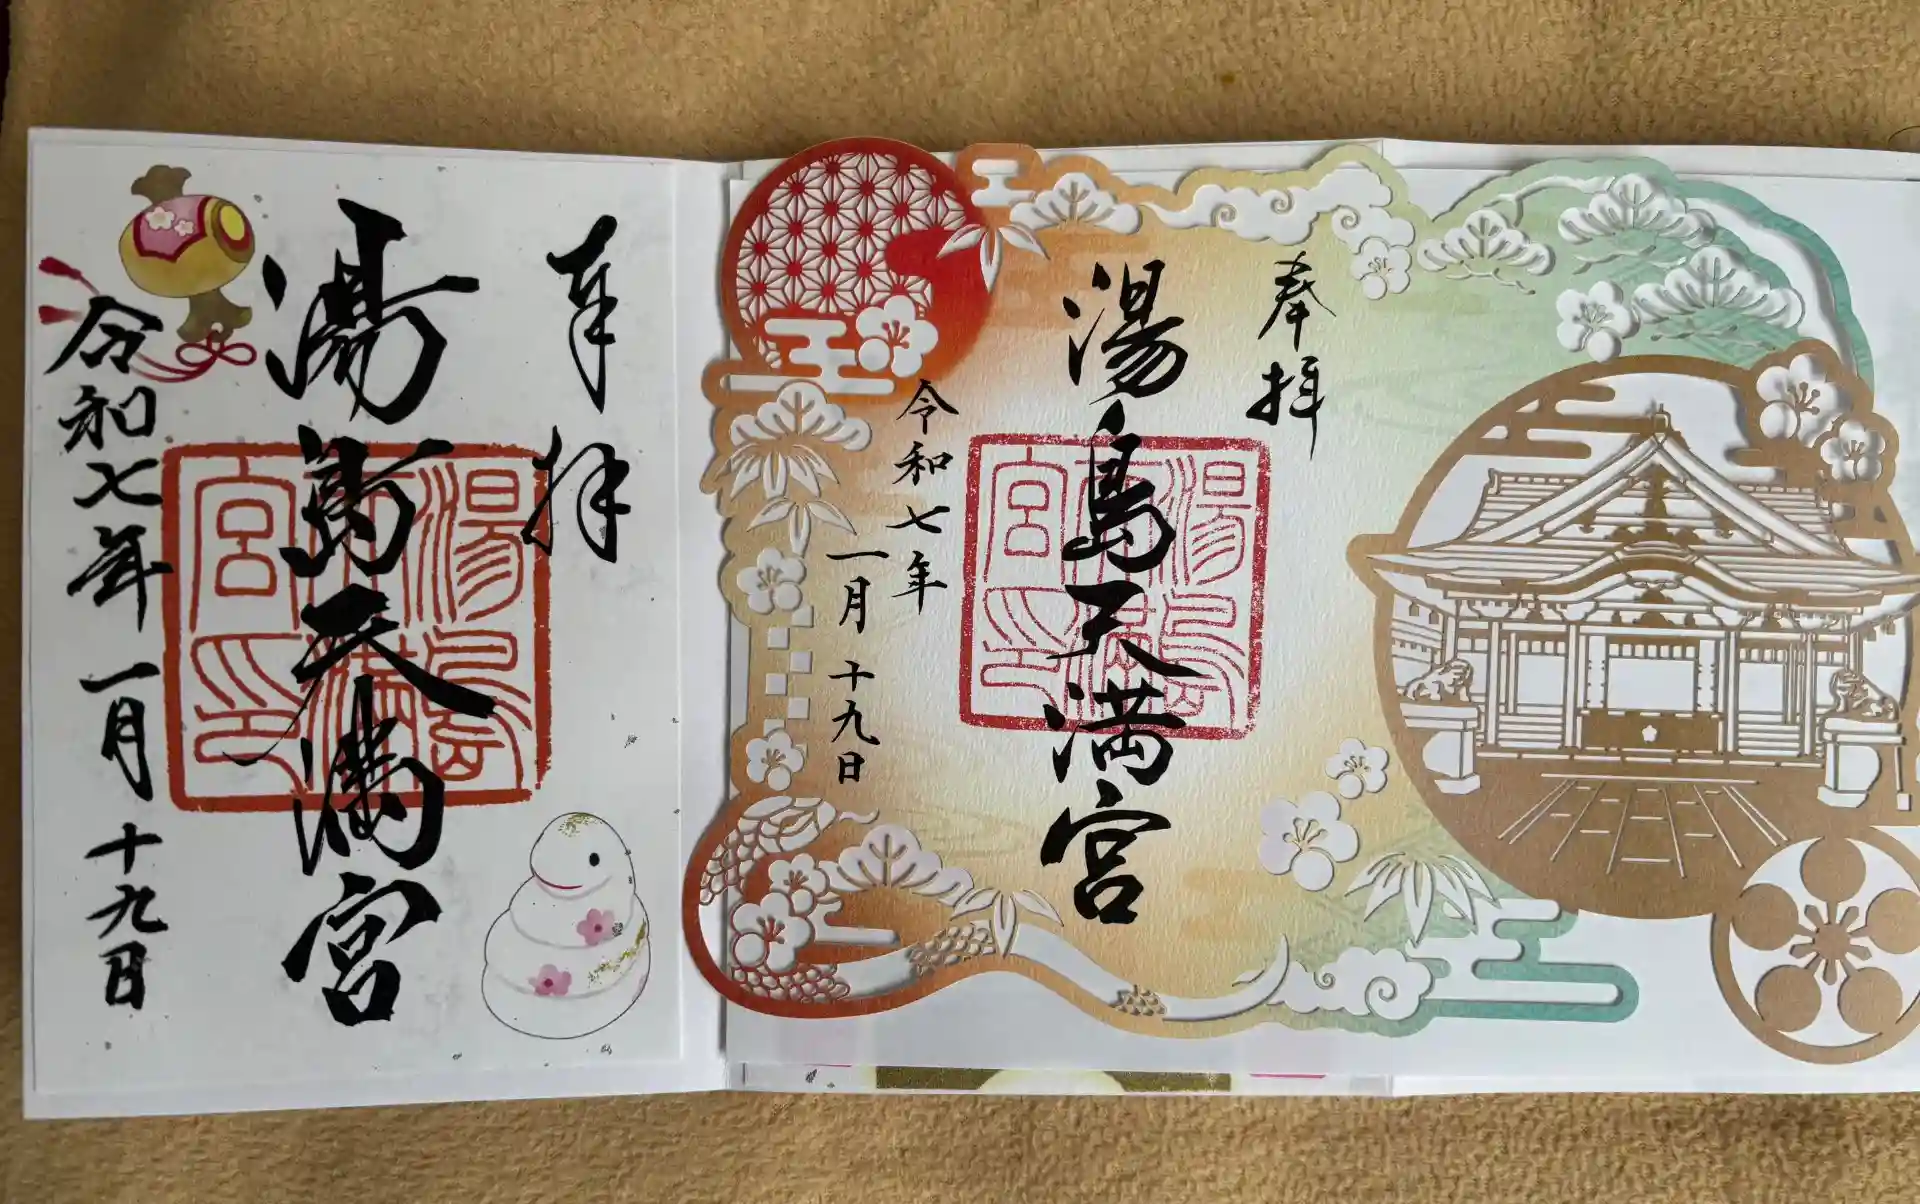 奉拝
湯島天満宮
令和七年 一月 十九日
湯島天満宮印
奉拝
湯島天満宮
令和七年
一月 十九日
湯島天満宮印